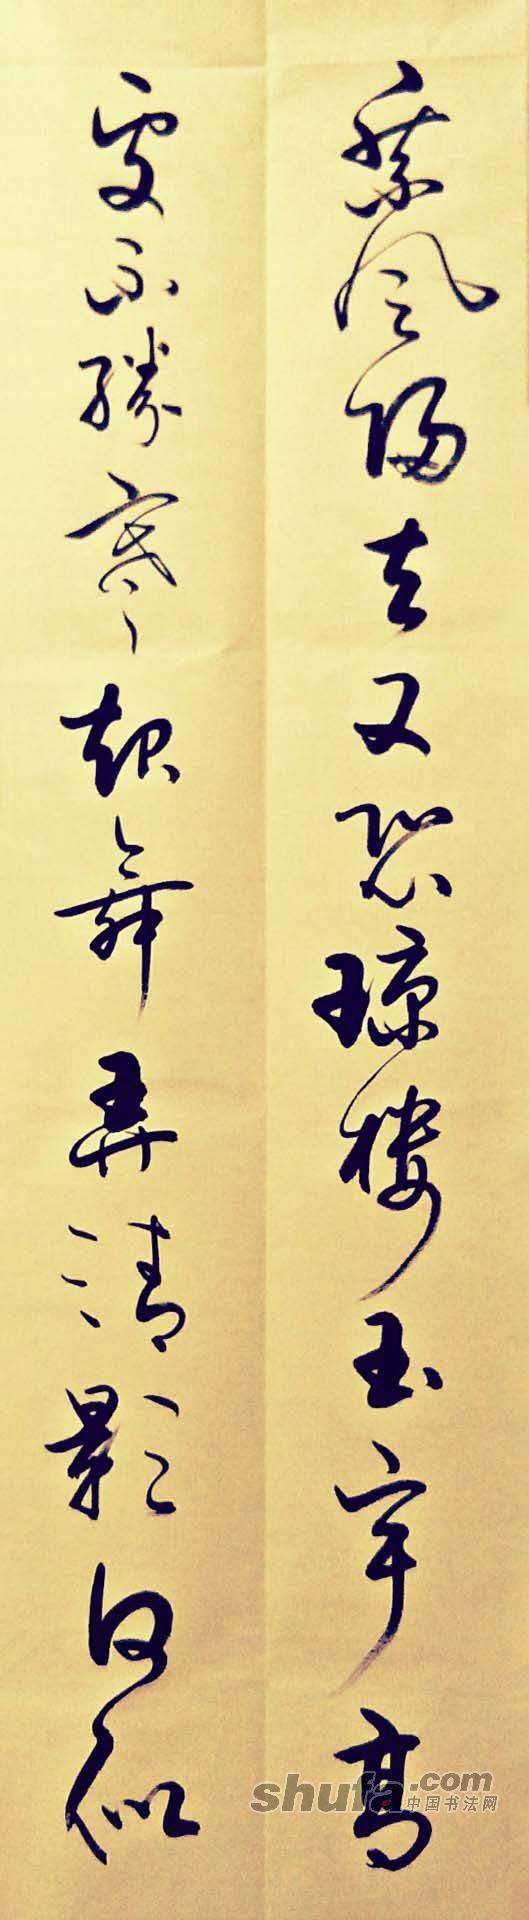 乘风归去又恐琼楼玉宇高
处不胜寒起舞弄清影何似
shufa.com
中国书法网